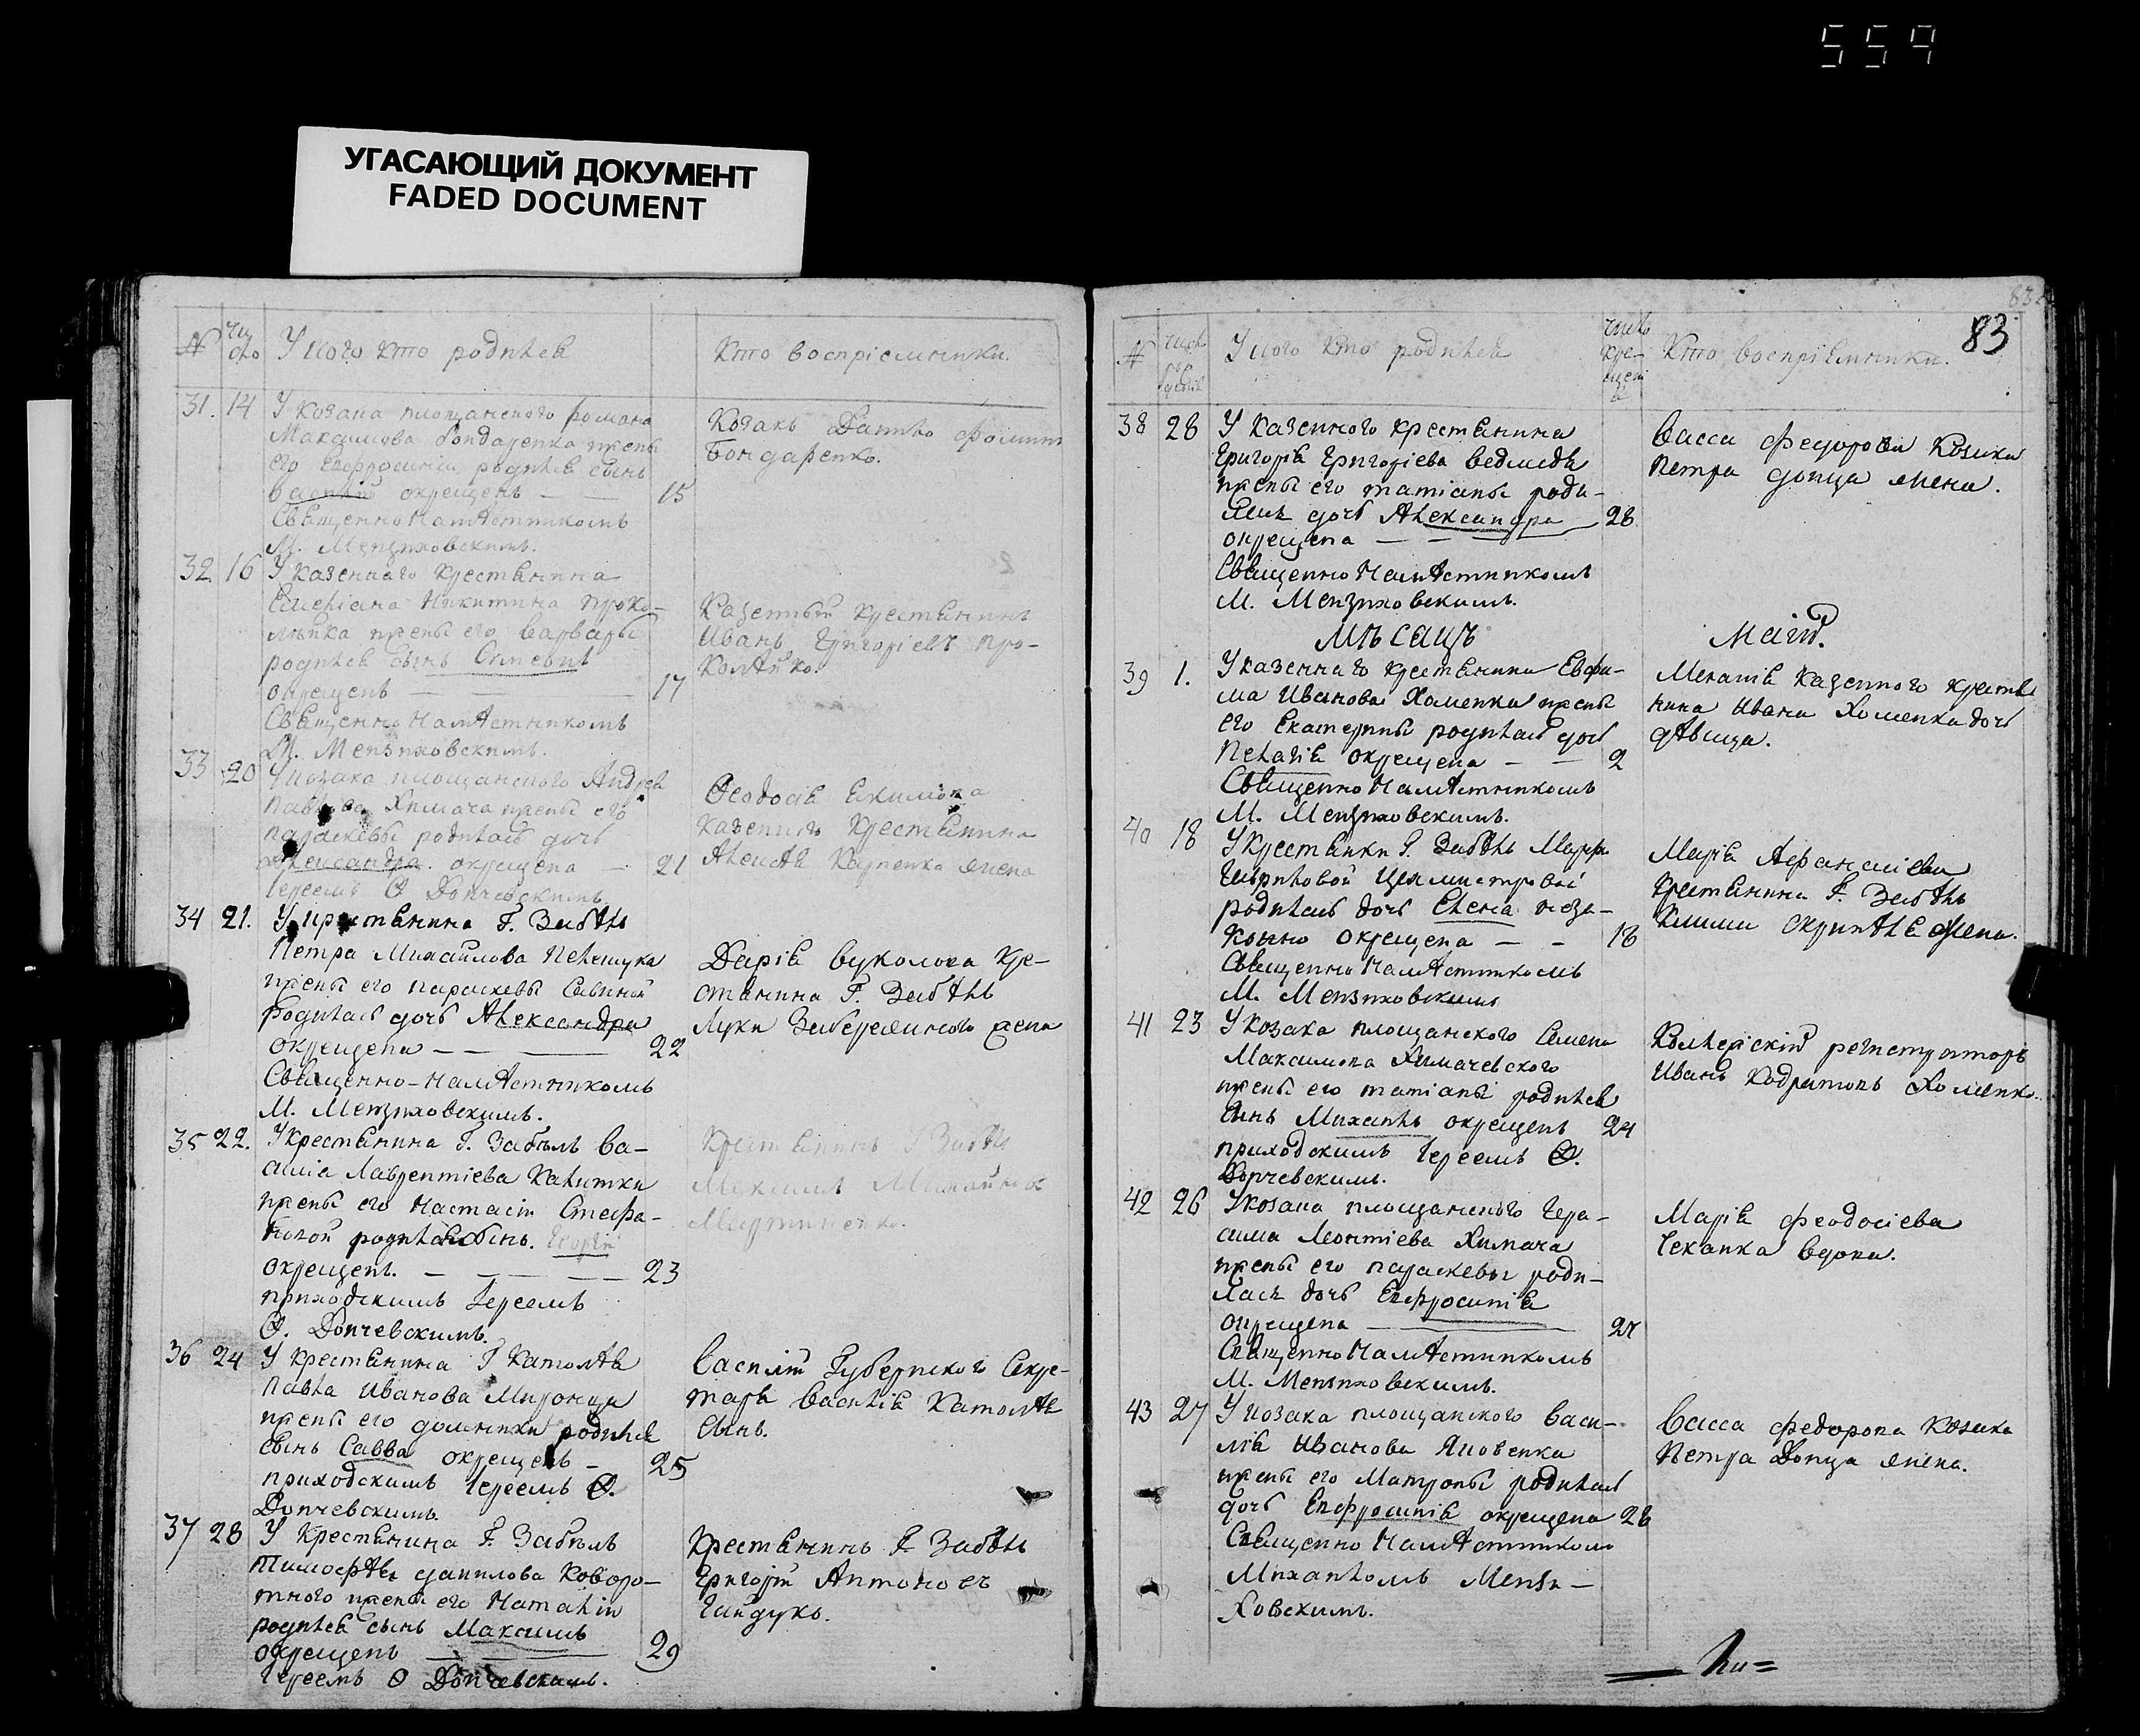 559
УГАСАЮЩИЙ ДОКУМЕНТ
FADED DOCUMENT
№ Число У кого кто родился Кто восприемники.
31. 14 У козака площанского романа
Максимова Бондаренка жены
его Евфросиніи родился сынъ
василій окрещенъ — — 15
Священно Намѣстникомъ
М. Мензиховскимъ.
Козакъ Данило
Бондаренко.
32. 16 У казеннаго крестьянина
Емеліана Никитина
жены его Варвары
родился сынъ Симеонъ
окрещенъ — — 17
Священно Намѣстникомъ
М. Мензиховскимъ.
Казенный крестьянинъ
Иванъ Григоріевъ
33 20 У козака площанского Андрея
Павлова Химача жены его
параскевы родилась дочь
Александра окрещена — 21
Іереемъ Ѳ Дончевскимъ
Ѳеодосія Екимова
казенного крестьянина
Алексѣя Карпенка жена
34 21. У крестьянина Г. Забѣлъ
Петра Михайлова Пелешука
жены его параскевы Савиной
родилась дочь Александра
окрещена — — — 22
Священно-Намѣстникомъ
М. Мензиховскимъ.
Дарія вуколова кре-
стянина Г. Забѣлъ
Луки жена
35 22. У крестьянина Г. Забѣлъ Ва-
силія Лаврентіева Калитки
жены его Настасіи Стефа-
новой родился сынъ. Георгій
окрещенъ. — — — 23
приходскимъ Іереемъ
Ѳ. Дончевскимъ.
Крестьянинъ Г Забѣлъ
Максимъ Михайловъ
Мартиненко.
36 24 У крестьянина Г Католѣя
павла Иванова Миронца
жены его домникии родился
сынъ Савва окрещенъ — 25
приходскимъ Іереемъ Ѳ.
Дончевскимъ.
Василій Губернского Секре-
таря Василія Католѣя
сынъ.
37 28 У крестьянина Г. Забѣлъ
Тимофѣя данилова Коворо-
тного жены его Наталіи
родился сынъ Максимъ
окрещенъ — 29
Іереемъ Ѳ Дончевскимъ.
Крестьянинъ Г. Забѣлъ
Григорій Антоновъ
Гайдукъ.
83
№ число рождения У кого кто родился число крещения Кто восприемники.
38 28 У казенного крестьянина
Григорія Григоріева ведмедя
жены его татіаны роди-
лась дочь Александра 28
окрещена — —
Священно Намѣстникомъ
М. Мензиховскимъ.
Васса федорова козака
петра донца жена.
Мѣсацъ Маій.
39 1. У казеннаго крестьянина Евфи-
ма Иванова Хоменка жены
его Екатерины родилась дочь
Пелагія окрещена — — 2
Священно Намѣстникомъ
М. Мензиховскимъ.
Меланія казенного крестья
нина Ивана Хоменка дочь
дѣвица.
40 18 У крестьянки Г. Забѣлъ Марфы
родилась дочь Елена неза-
конно окрещена — — 18
Священно Намѣстникомъ
М. Мензиховскимъ
Марія Афанасіева
крестьянина Г. Забѣлъ
жена.
41 23 У козака площанского Семена
Максимова Химачевского
жены его татіаны родился
сынъ Михаилъ окрещенъ 24
приходскимъ Іереемъ Ѳ.
Дончевскимъ.
Колежскій регистраторъ
Иванъ Кодратовъ Хоменко.
42 26 У козака площанского Гера-
сима Леонтіева Химача
жены его параскевы роди-
лась дочь Евфросинія
окрещена — 27
Священно Намѣстникомъ
М. Мензиховскимъ.
Марія феодосіева
Чеканка вдова.
43 27 У козака площанского Васи-
лія Иванова Яковенка
жены его Матроны родилась
дочь Евфросинія окрещена 28
Священно Намѣстникомъ
Михаиломъ Мензи-
ховскимъ.
Васса федорова козака
Петра Донца жена.